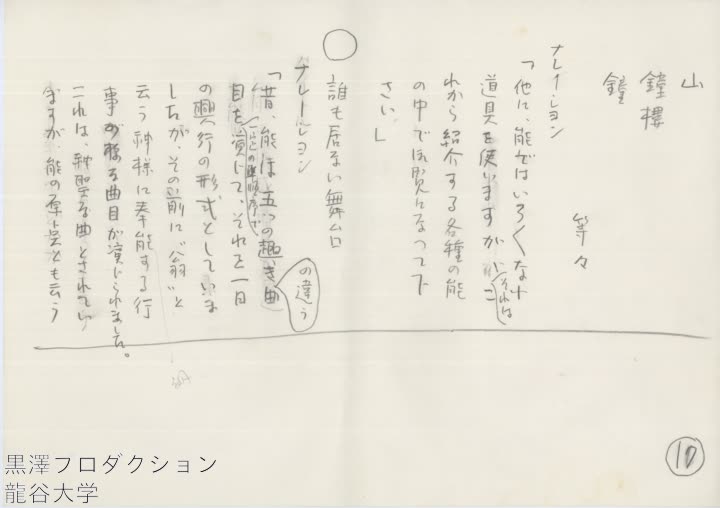 山
鐘楼
鐘
等々
ナレーション
「他に、能ではいろ〱な小
道具を使いますが、それはこ
れから紹介する各種の能
の中で御覧になって下
さい。」
○
誰も居ない舞台
ナレーション
「昔、能は五つの趣きの違う曲
目を、演じて、それを一日
の興行の形式としていま
したが、その前に〝翁〟と
云う神様に奉能する行
事が有る曲目が演じられました。
これは、神聖な曲とされてい
ますが、能の とも云う
10
黒澤プロダクション
龍谷大学